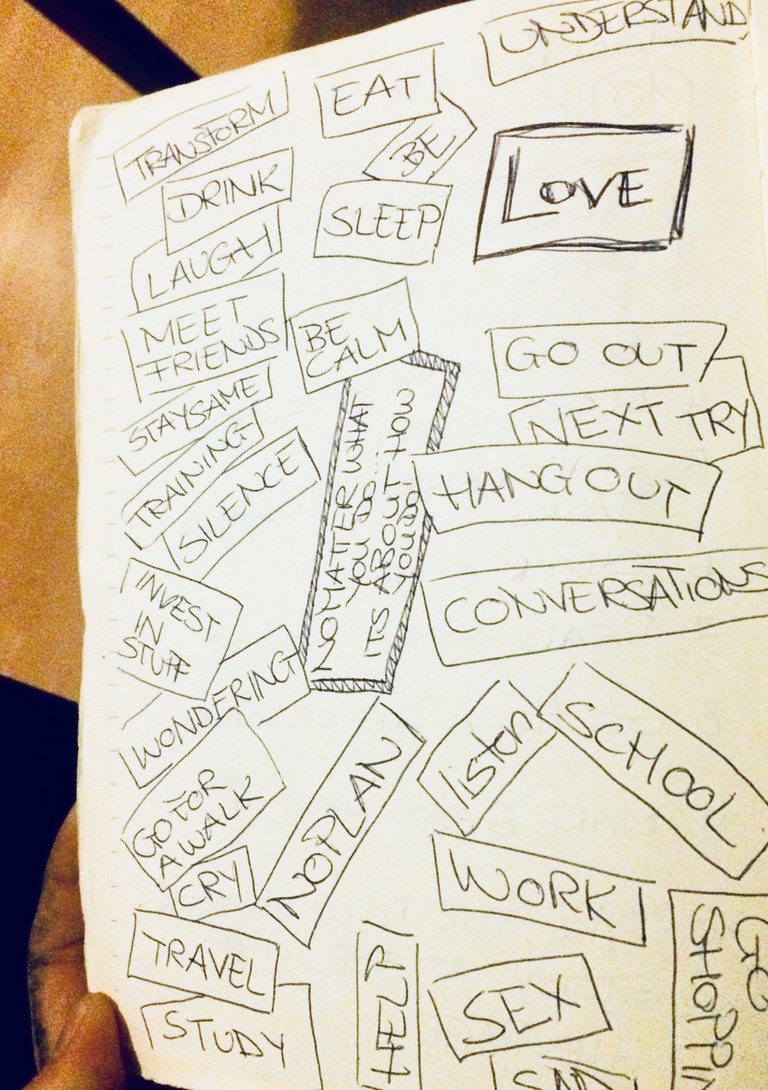 UNDERSTAND
TRANSFORM
EAT
BE
DRINK
SLEEP
LOVE
LAUGH
MEET
FRIENDS
BE
CALM
GO OUT
STAYSAME
NEXT TRY
TRAINING
SILENCE
NO MATTER WHAT
YOU DO..
ITS ABOUT HOW
YOU DO
HANG OUT
INVEST
IN
STUFF
CONVERSATIONS
WONDERING
GO FOR
A WALK
NO PLAN
Listen
SCHOOL
CRY
WORK
TRAVEL
STUDY
HELP
SEX
GO
SHOPPI